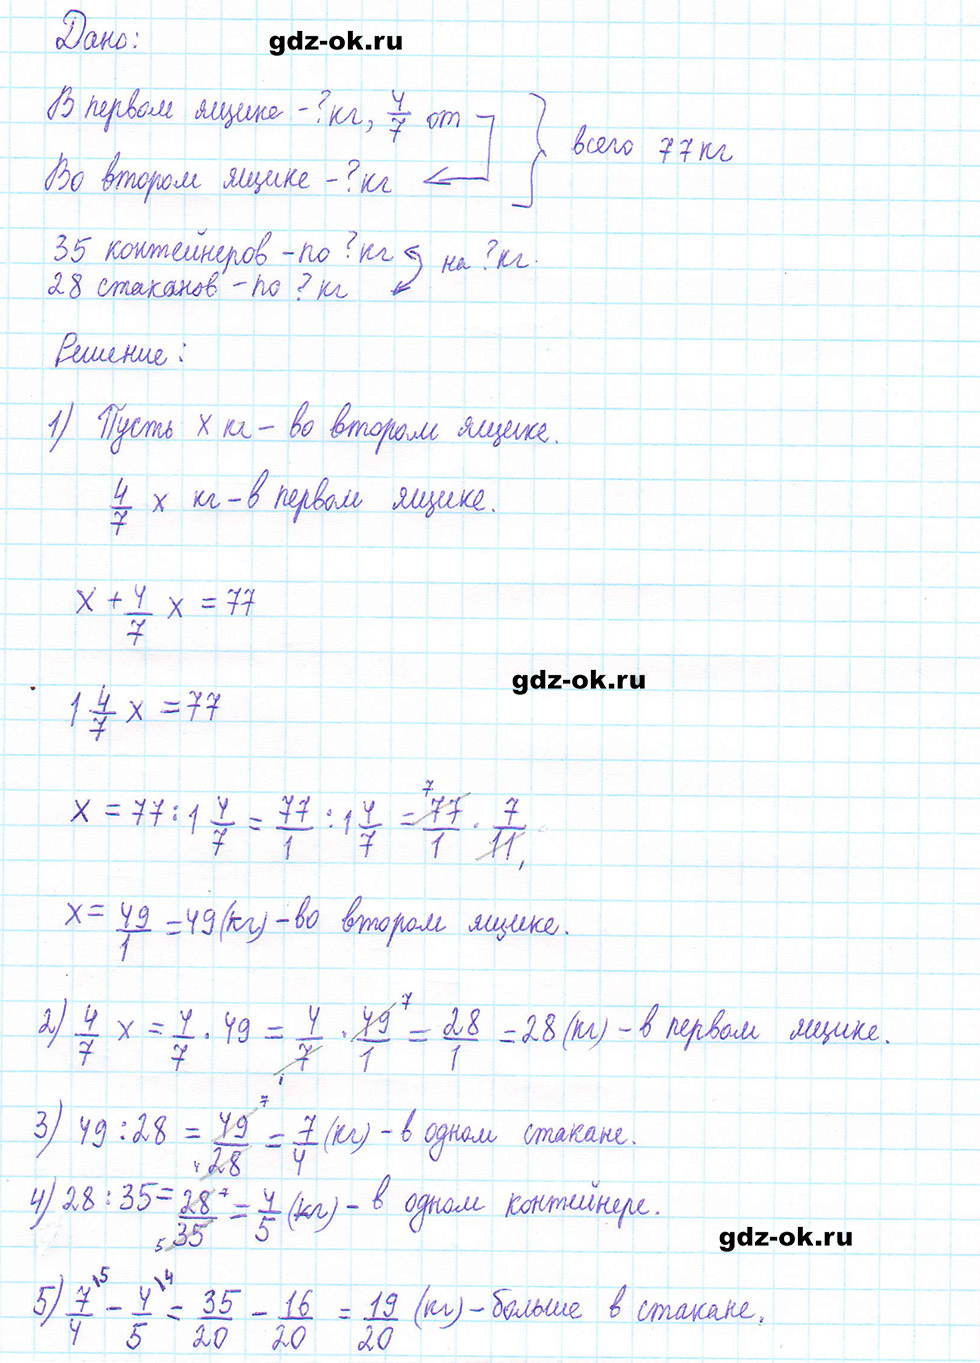 Дано:
gdz-ok.ru
В первом ящике - ? кг, 4/7 от
Во втором ящике - ? кг
всего 77 кг
35 контейнеров - по ? кг
28 стаканов - по ? кг
на ? кг.
Решение:
1) Пусть x кг - во втором ящике.
4/7 x кг - в первом ящике.
x + 4/7 x = 77
gdz-ok.ru
1 4/7 x = 77
x = 77 : 1 4/7 = 77/1 : 1 4/7 = 77/1 · 7/11
x = 49/1 = 49 (кг) - во втором ящике.
2) 4/7 x = 4/7 · 49 = 4/7 · 49/1 = 28/1 = 28 (кг) - в первом ящике.
3) 49 : 28 = 49/28 = 7/4 (кг) - в одном стакане.
4) 28 : 35 = 28/35 = 4/5 (кг) - в одном контейнере.
gdz-ok.ru
5) 7/4 - 4/5 = 35/20 - 16/20 = 19/20 (кг) - больше в стакане.